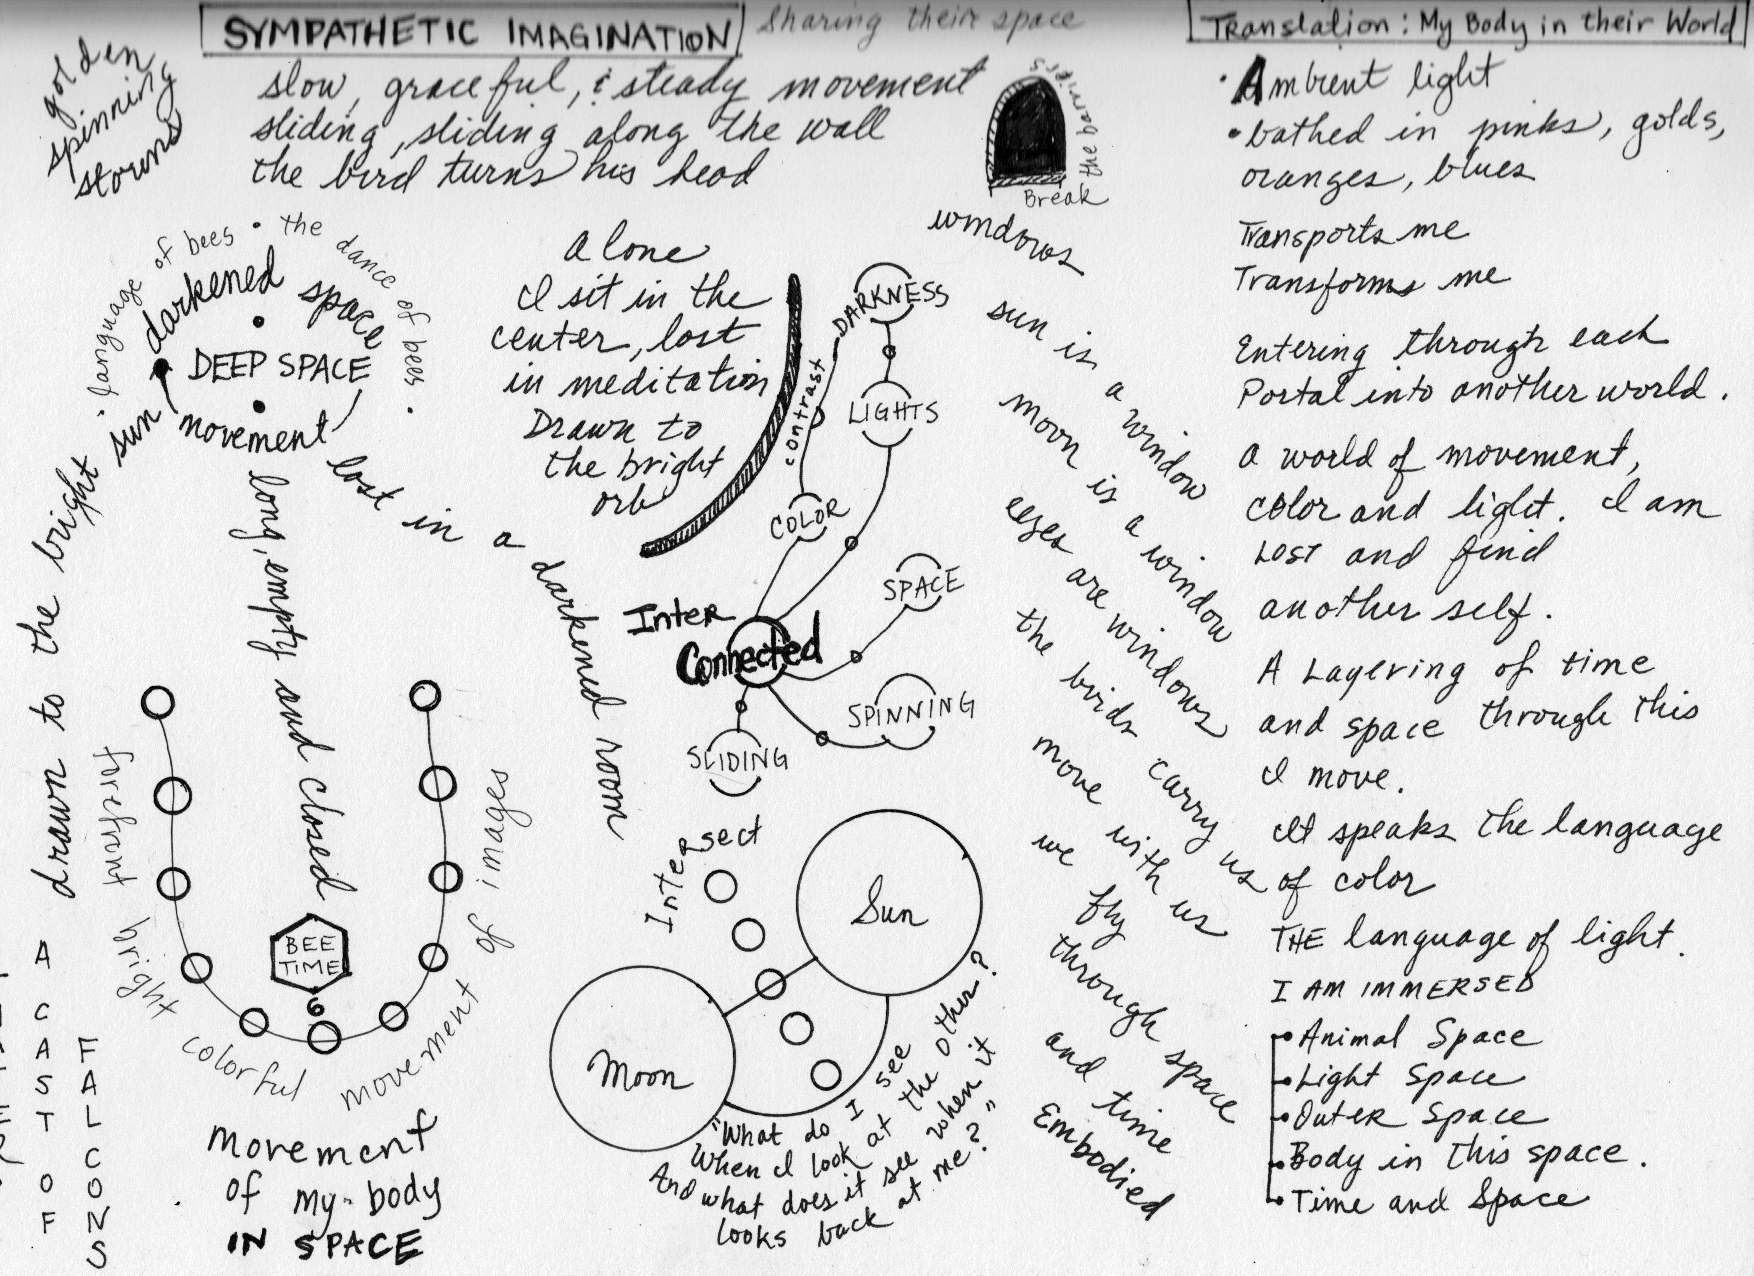 golden
spinning
storms
SYMPATHETIC IMAGINATION
Sharing their space
slow, graceful, & steady movement
sliding, sliding along the wall
the bird turns his head
Break the barriers
windows
language of bees • the dance of bees •
darkened space
DEEP SPACE
movement
drawn to the bright sun
long, empty and closed
lost in a darkened room
alone
I sit in the
center, lost
in meditation
Drawn to
the bright
orb
DARKNESS
contrast
LIGHTS
COLOR
SPACE
Inter
Connected
SPINNING
SLIDING
sun is a window
moon is a window
eyes are windows
the birds carry us
move with us
we fly
through space
and time
Embodied
forefront
bright
colorful
movement of images
BEE
TIME
6
movement
of my body
IN SPACE
A CAST OF
FALCONS
Intersect
Sun
Moon
"What do I see
When I look at the other?
And what does it see when it
looks back at me?"
Translation: My Body in their World
• Ambient light
• bathed in pinks, golds,
oranges, blues
Transports me
Transforms me
Entering through each
Portal into another world.
A world of movement,
color and light. I am
Lost and find
another self.
A Layering of time
and space through this
I move.
It speaks the language
of color
THE language of light.
I AM IMMERSED
• Animal Space
• Light Space
• Outer Space
• Body in this space.
• Time and Space